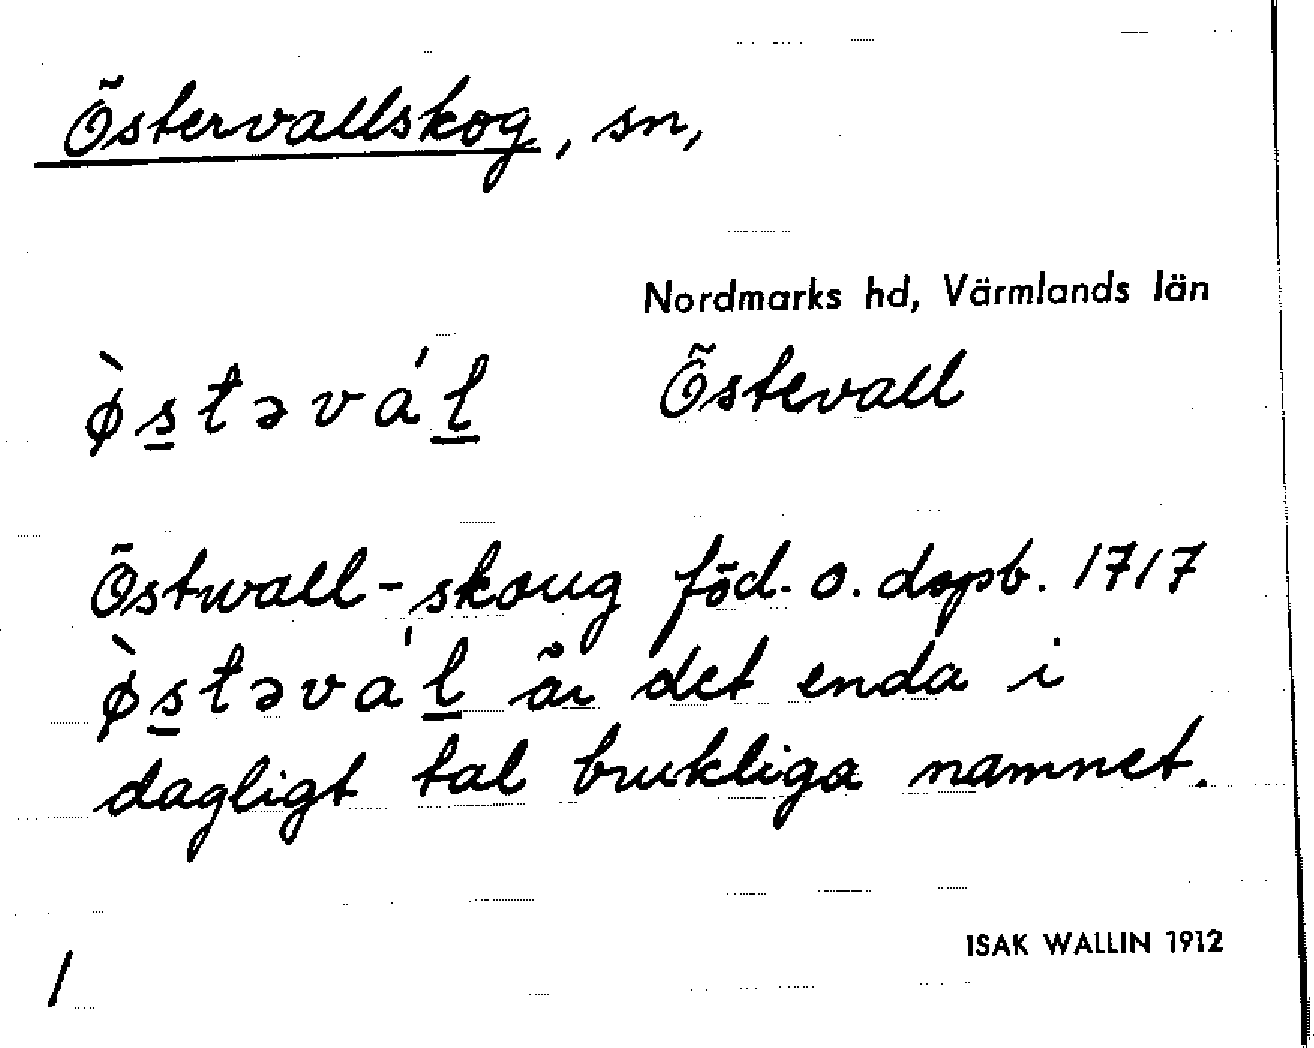 Östervallskog, sn,
Nordmarks hd, Värmlands län
ø̀s̲təvá́l̲ Östevall
Östwall-skoug föd. o. dopb. 1717
ø̀s̲təvá́l̲ är det enda i
dagligt tal brukliga namnet.
ISAK WALLIN 1912
1